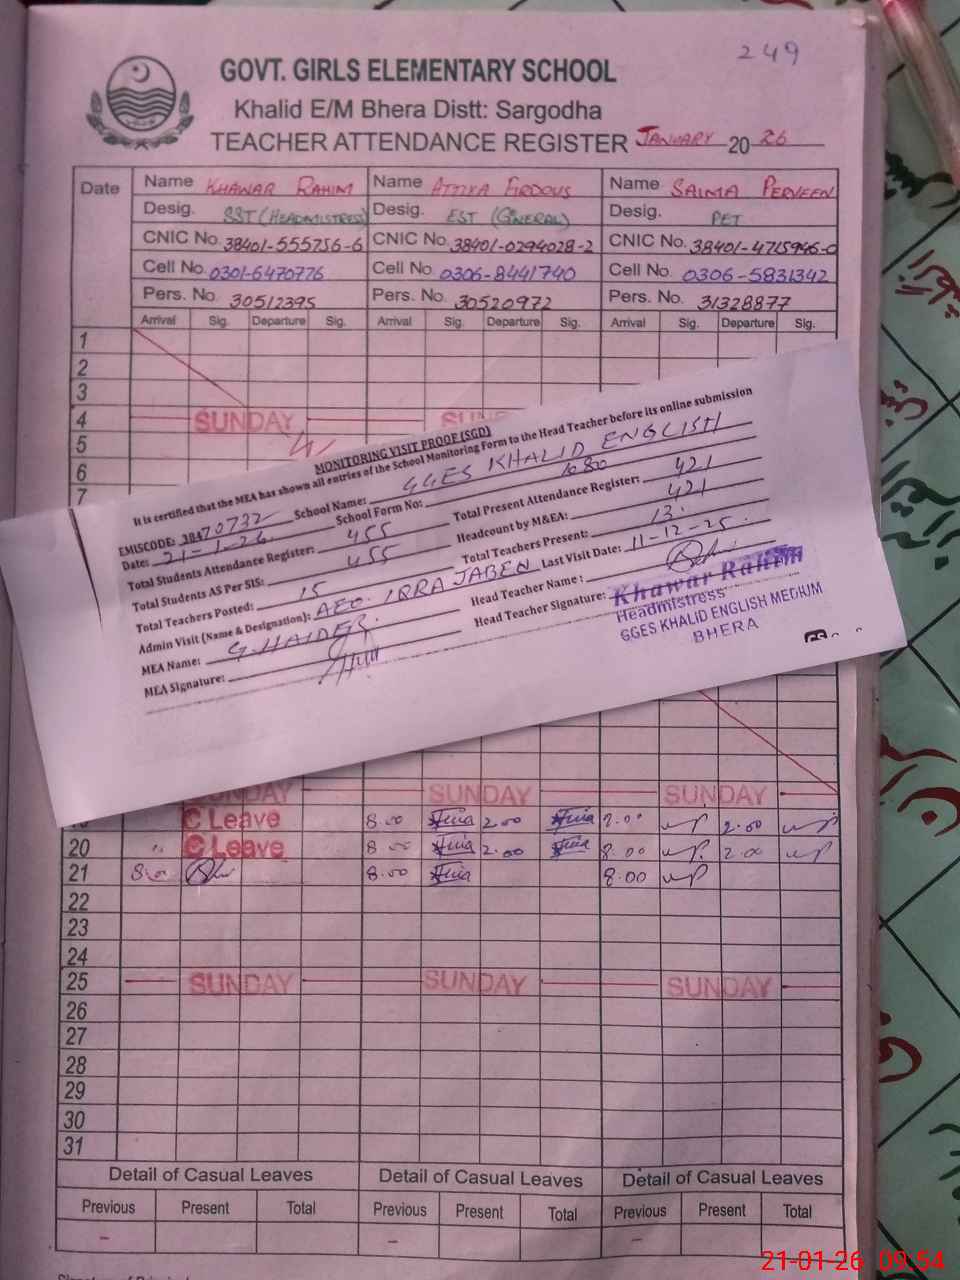 249
GOVT. GIRLS ELEMENTARY SCHOOL
Khalid E/M Bhera Distt: Sargodha
TEACHER ATTENDANCE REGISTER JANUARY 2026
Date Name KHAWAR RAHIM Name ATTIYA FIRDOUS Name SAIMA PERVEEN
Desig. SST (HEADMISTRESS) Desig. EST (GNERAL) Desig. PET
CNIC No. 38401-555756-6 CNIC No. 38401-0294028-2 CNIC No. 38401-4715946-0
Cell No. 0301-6470776 Cell No. 0306-8441740 Cell No. 0306-5831342
Pers. No. 30512395 Pers. No. 30520972 Pers. No. 31328877
Arrival Sig. Departure Sig. Arrival Sig. Departure Sig. Arrival Sig. Departure Sig.
1
2
3
4 SUNDAY SUND
5
6
7
MONITORING VISIT PROOF (SGD)
It is certified that the MEA has shown all entries of the School Monitoring Form to the Head Teacher before its online submission
EMISCODE: 38470732 School Name: GGES KHALID ENGLISH
Date: 21-1-26 School Form No: 1080
Total Students Attendance Register: 455 Total Present Attendance Register: 421
Total Students AS Per SIS: 455 Headcount by M&EA: 421
Total Teachers Posted: 15 Total Teachers Present: 13
Admin Visit (Name & Designation): AEO. IQRA JABEN Last Visit Date: 11-12-25
MEA Name: G. HAIDER Head Teacher Name:
MEA Signature: Head Teacher Signature:
Khawar Rahim
Headmistress
GGES KHALID ENGLISH MEDIUM
BHERA
SUNDAY SUNDAY SUNDAY
C Leave 8.00 2.00 8.00 2.00
20 " C Leave 8.00 2.00 8.00 2.00
21 8.00 8.00 8.00
22
23
24
25 SUNDAY SUNDAY SUNDAY
26
27
28
29
30
31
Detail of Casual Leaves Detail of Casual Leaves Detail of Casual Leaves
Previous Present Total Previous Present Total Previous Present Total
– – –
21-01-26 09:54